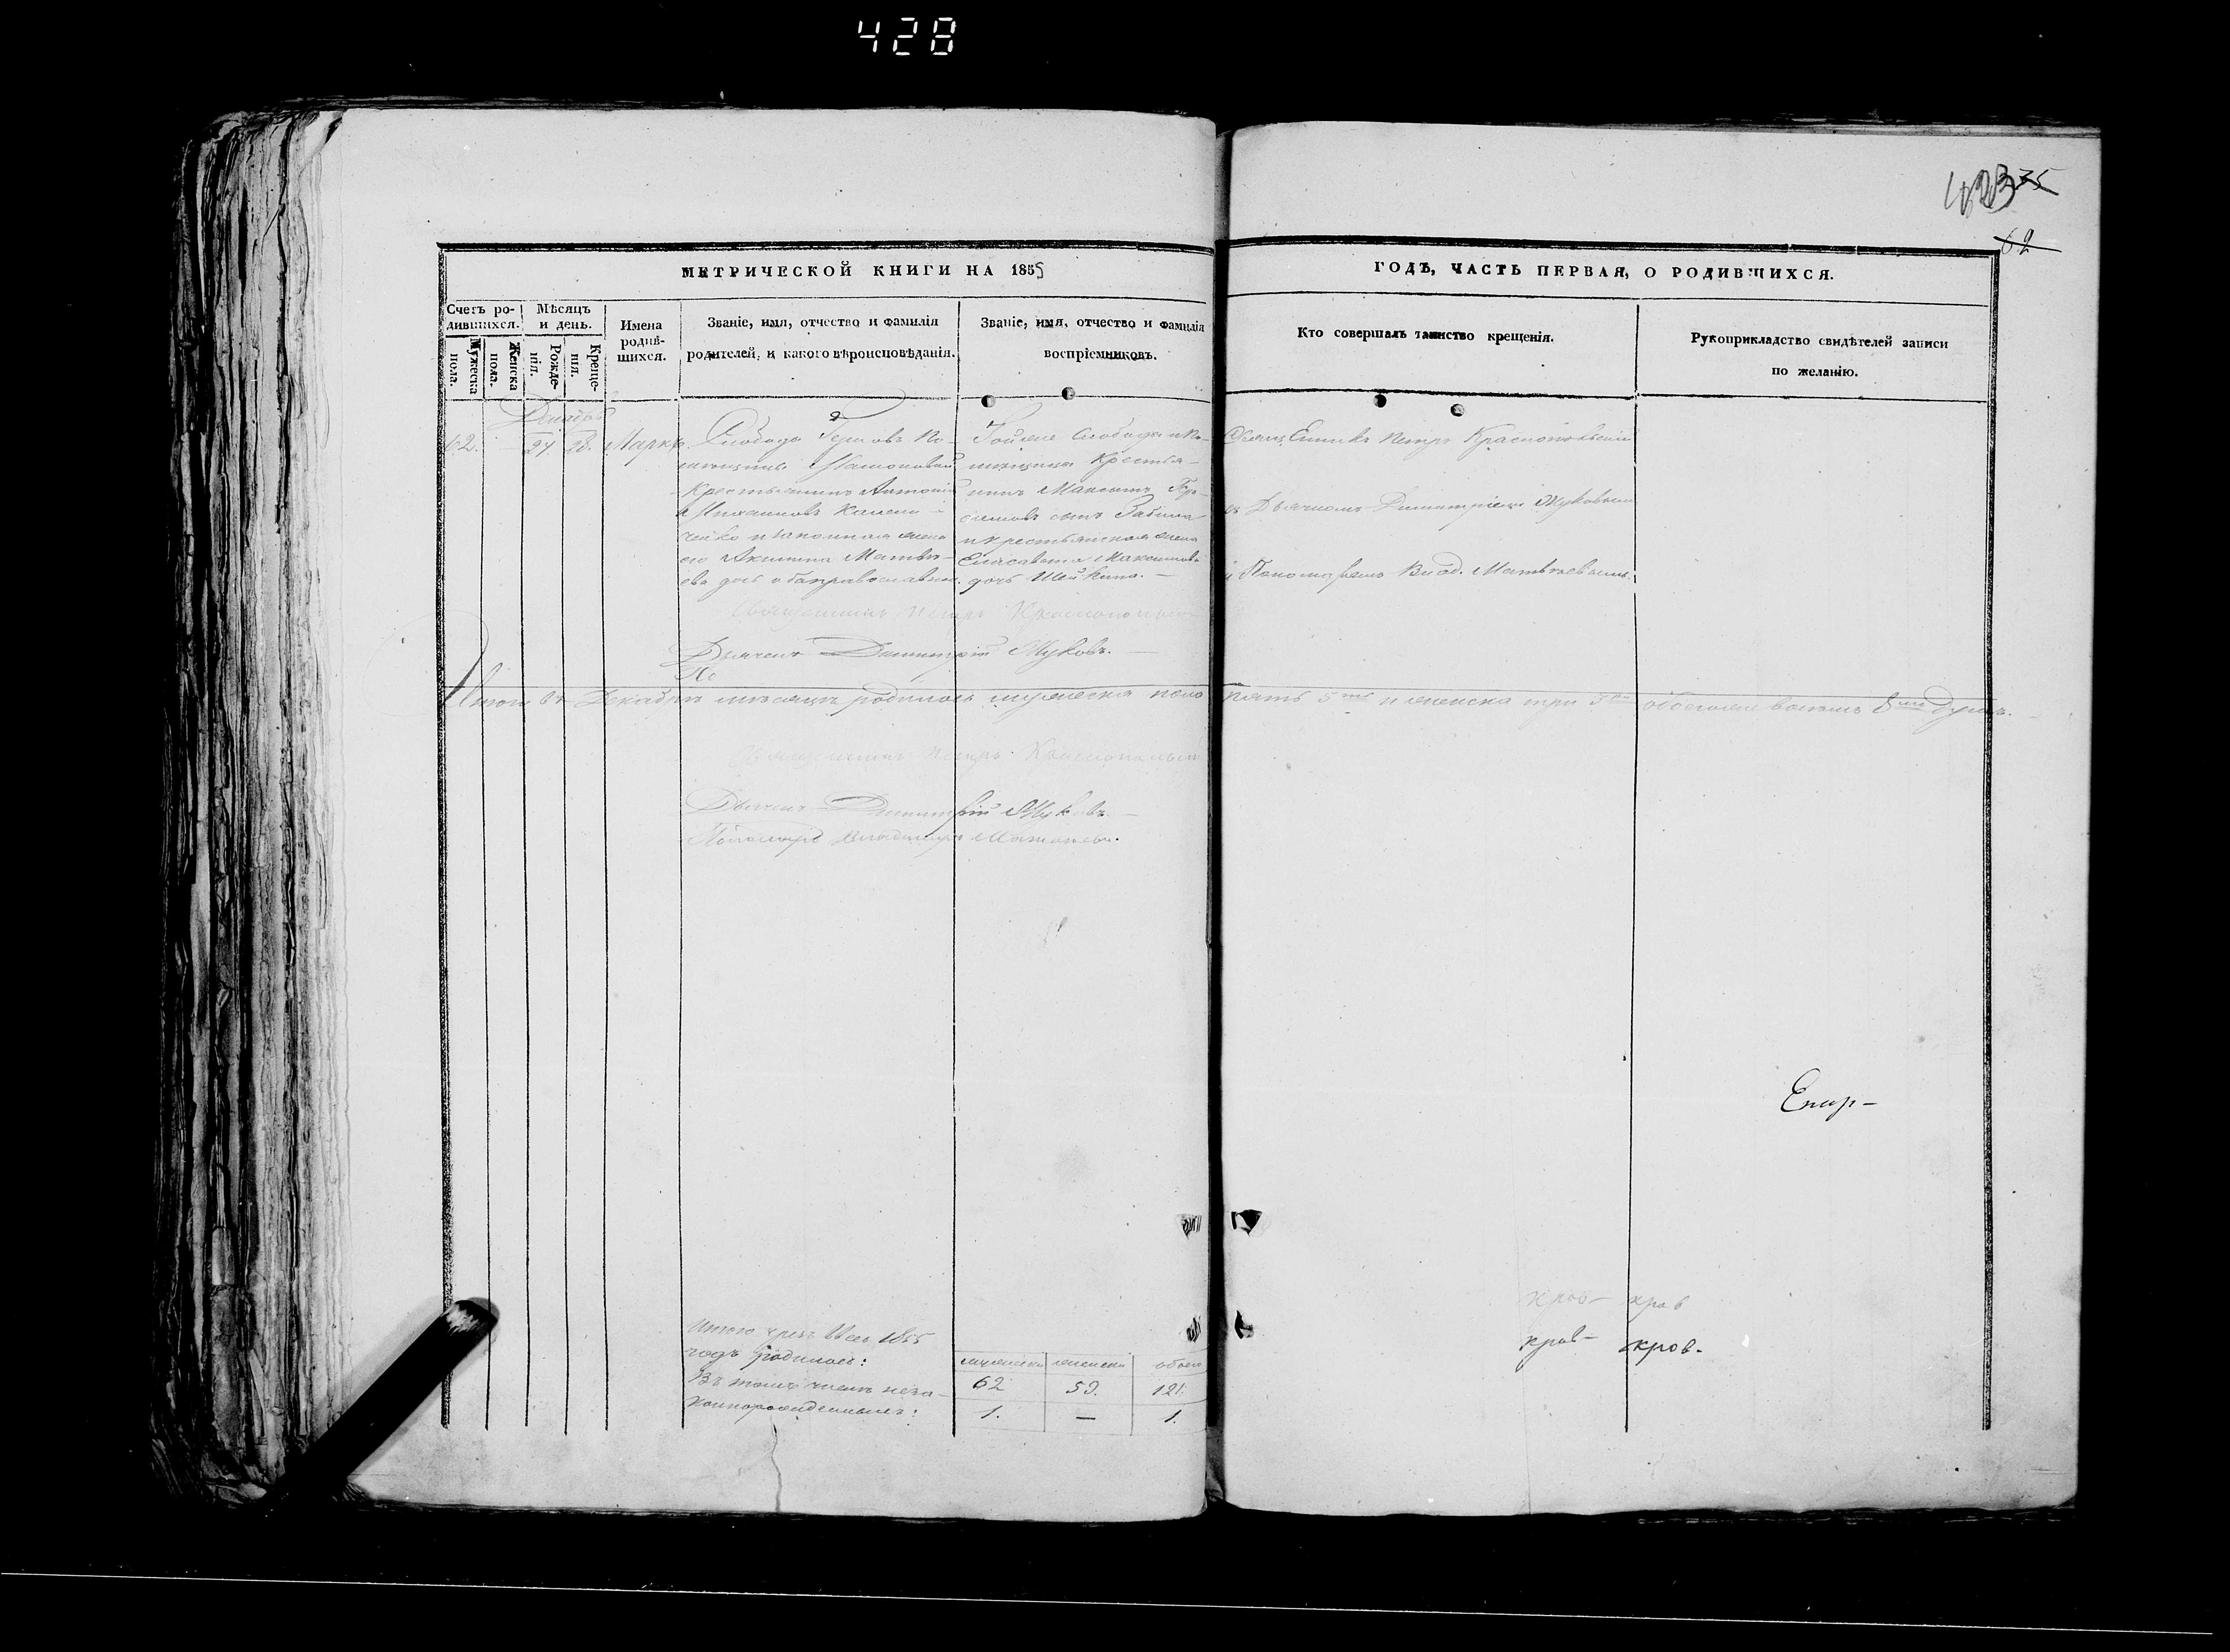 428
423 35
62
МЕТРИЧЕСКОЙ КНИГИ НА 1855
ГОДЪ, ЧАСТЬ ПЕРВАЯ, О РОДИВШИХСЯ.
Счетъ ро-
дившихся.
Мѣсяцъ
и день.
Мужеска
пола.
Женска
пола.
Рожде-
нія.
Креще-
нія.
Имена
родив-
шихся.
Званіе, имя, отчество и фамилія
родителей, и какого вѣроисповѣданія.
Званіе, имя, отчество и фамилія
воспріемниковъ.
Кто совершалъ таинство крещенія.
Рукоприкладство свидѣтелей записи
по желанію.
Декабрь
62. 27. 28. Маркъ.
Слобода По-
мѣщицы
Крестьянинъ Антоній
и законная жена
его Акилина Матвѣ-
ева дочь оба православные.
Тойже слободы и по-
мѣщицы Крестья-
нинъ Максимъ
сынъ
и крестьянская жена
Елисавета Максимова
дочь
Петръ
съ Дьячкомъ Димитріемъ Жуковымъ
и Пономаремъ Влад. Матвѣевымъ.
Священникъ Петръ
Дьячекъ Димитрій Жуковъ.
По
Итого въ Декабрѣ мѣсяцѣ родилось мужеска пола пять 5ть и женска три 3и обоего же восемь 8мь душъ.
Священникъ Петръ
Дьячекъ Димитрій Жуковъ.
Пономарь Владимиръ Матвѣевъ.
Епар-
кров- кров
кров- кров.
Итого чрезъ весь 1855
годъ родилось:
Въ томъ числѣ неза-
коннорожденныхъ:
мужеска женска обоего
62 59. 121.
1. — 1.